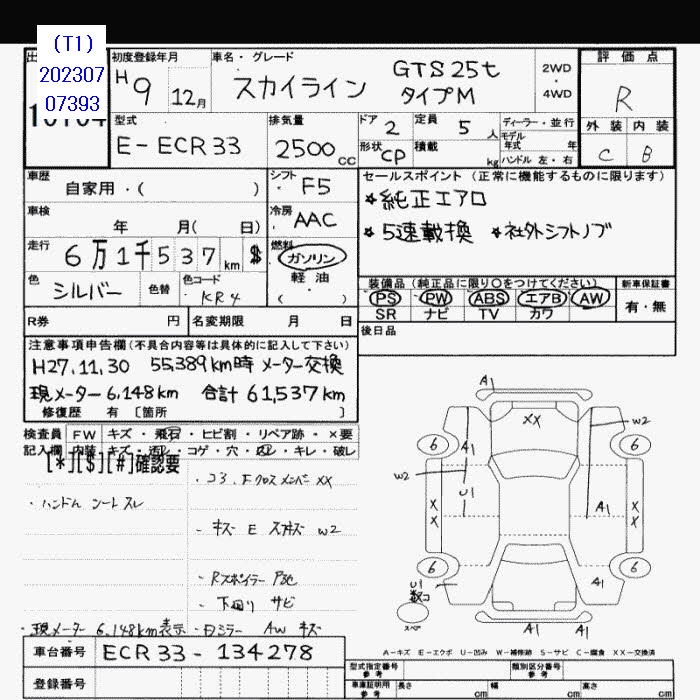 (T1)
202307
07393
初度登録年月
H 9 12月
車名・グレード
スカイライン
GTS25t
タイプM
2WD
・
4WD
評価点
R
外装 内装
C B
型式
E-ECR33
排気量
2500 CC
ドア
2
定員
5 人
形状
CP
積載
kg
ディーラー・並行
モデル
年式 年
ハンドル 左・右
車歴
自家用・( )
シフト
F5
車検
年 月( 日)
冷房
AAC
走行
6万1千537 km $
燃料
ガソリン
軽油
( )
色
シルバー
色替
色コード
KR4
R券 円
名変期限 月 日
セールスポイント (正常に機能するものに限ります)
★純正エアロ
★5速載換 ★社外シフトノブ
装備品 (純正品に限り○をつけてください)
PS PW ABS エアB AW
SR ナビ TV カワ
新車保証書
有・無
後日品
注意事項申告欄(不具合内容等は具体的に記入して下さい)
H27.11.30 55,389km時 メーター交換
現メーター 6,148km 合計 61,537km
修復歴 有 〔箇所 〕
検査員 FW キズ・飛石・ヒビ割・リペア跡・×要
記入欄 内装 キズ・汚れ・コゲ・穴・凹・キレ・破レ
[*][$][#]確認要
・ハンドル シートスレ
・コラ.Fクロスメンバー XX
・キズ E ススキズ W2
・Rスポイラー P多
・下回り サビ
・現メーター 6,148km表示
・ドアミラー AW キズ
A1
XX
W2
6
A1
6
W2
U1
X
X
A1
X
X
6
A1
6
U1
数コ
スペア
A1
A1
A-キズ E-エクボ U-凹み W-補修跡 S-サビ C-腐食 XX-交換済
車台番号
ECR33-134278
登録番号
型式指定番号
参考
類別区分番号
参考
車庫証明用
参考
長さ cm
幅 cm
高さ cm